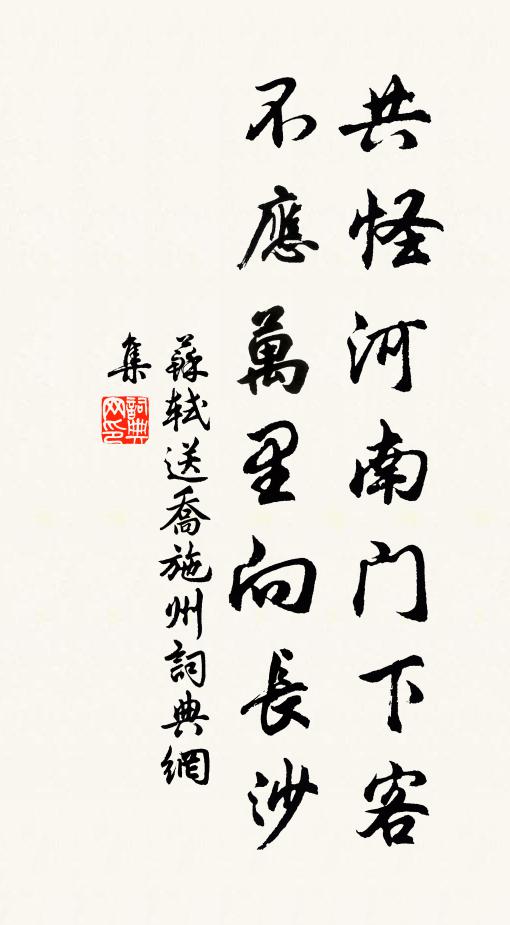 共怪河南門下客
不應萬里向長沙
蘇軾送喬施州詞典網
集
詞典
网印